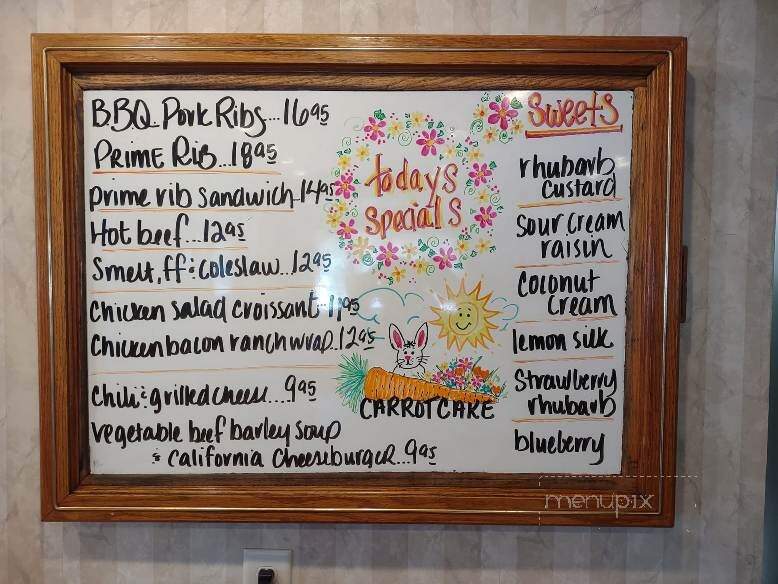 BBQ Pork Ribs...16 95
PRIME RIB...18 95
prime rib sandwich 14 95
Hot beef...12 95
Smelt, ff & coleslaw...12 95
Chicken salad croissant...11 95
Chicken bacon ranch wrap...12 95
Chili & grilled cheese...9 95
vegetable beef barley soup
& California Cheeseburger...9 95
todays
specials
CARROT CAKE
Sweets
rhubarb
custard
sour cream
raisin
coconut
cream
lemon silk
Strawberry
rhubarb
blueberry
menupix